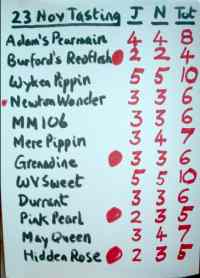 23 Nov Tasting J N Tot
Adam's Pearmain 4 4 8
Burford's Redflesh 2 2 4
Wyken Pippin 5 5 10
Newton Wonder 3 3 6
MM106 3 3 6
Mere Pippin 3 4 7
Grenadine 3 3 6
WV Sweet 5 5 10
Durrant 3 3 6
Pink Pearl 2 3 5
May Queen 3 4 7
Hidden Rose 2 3 5